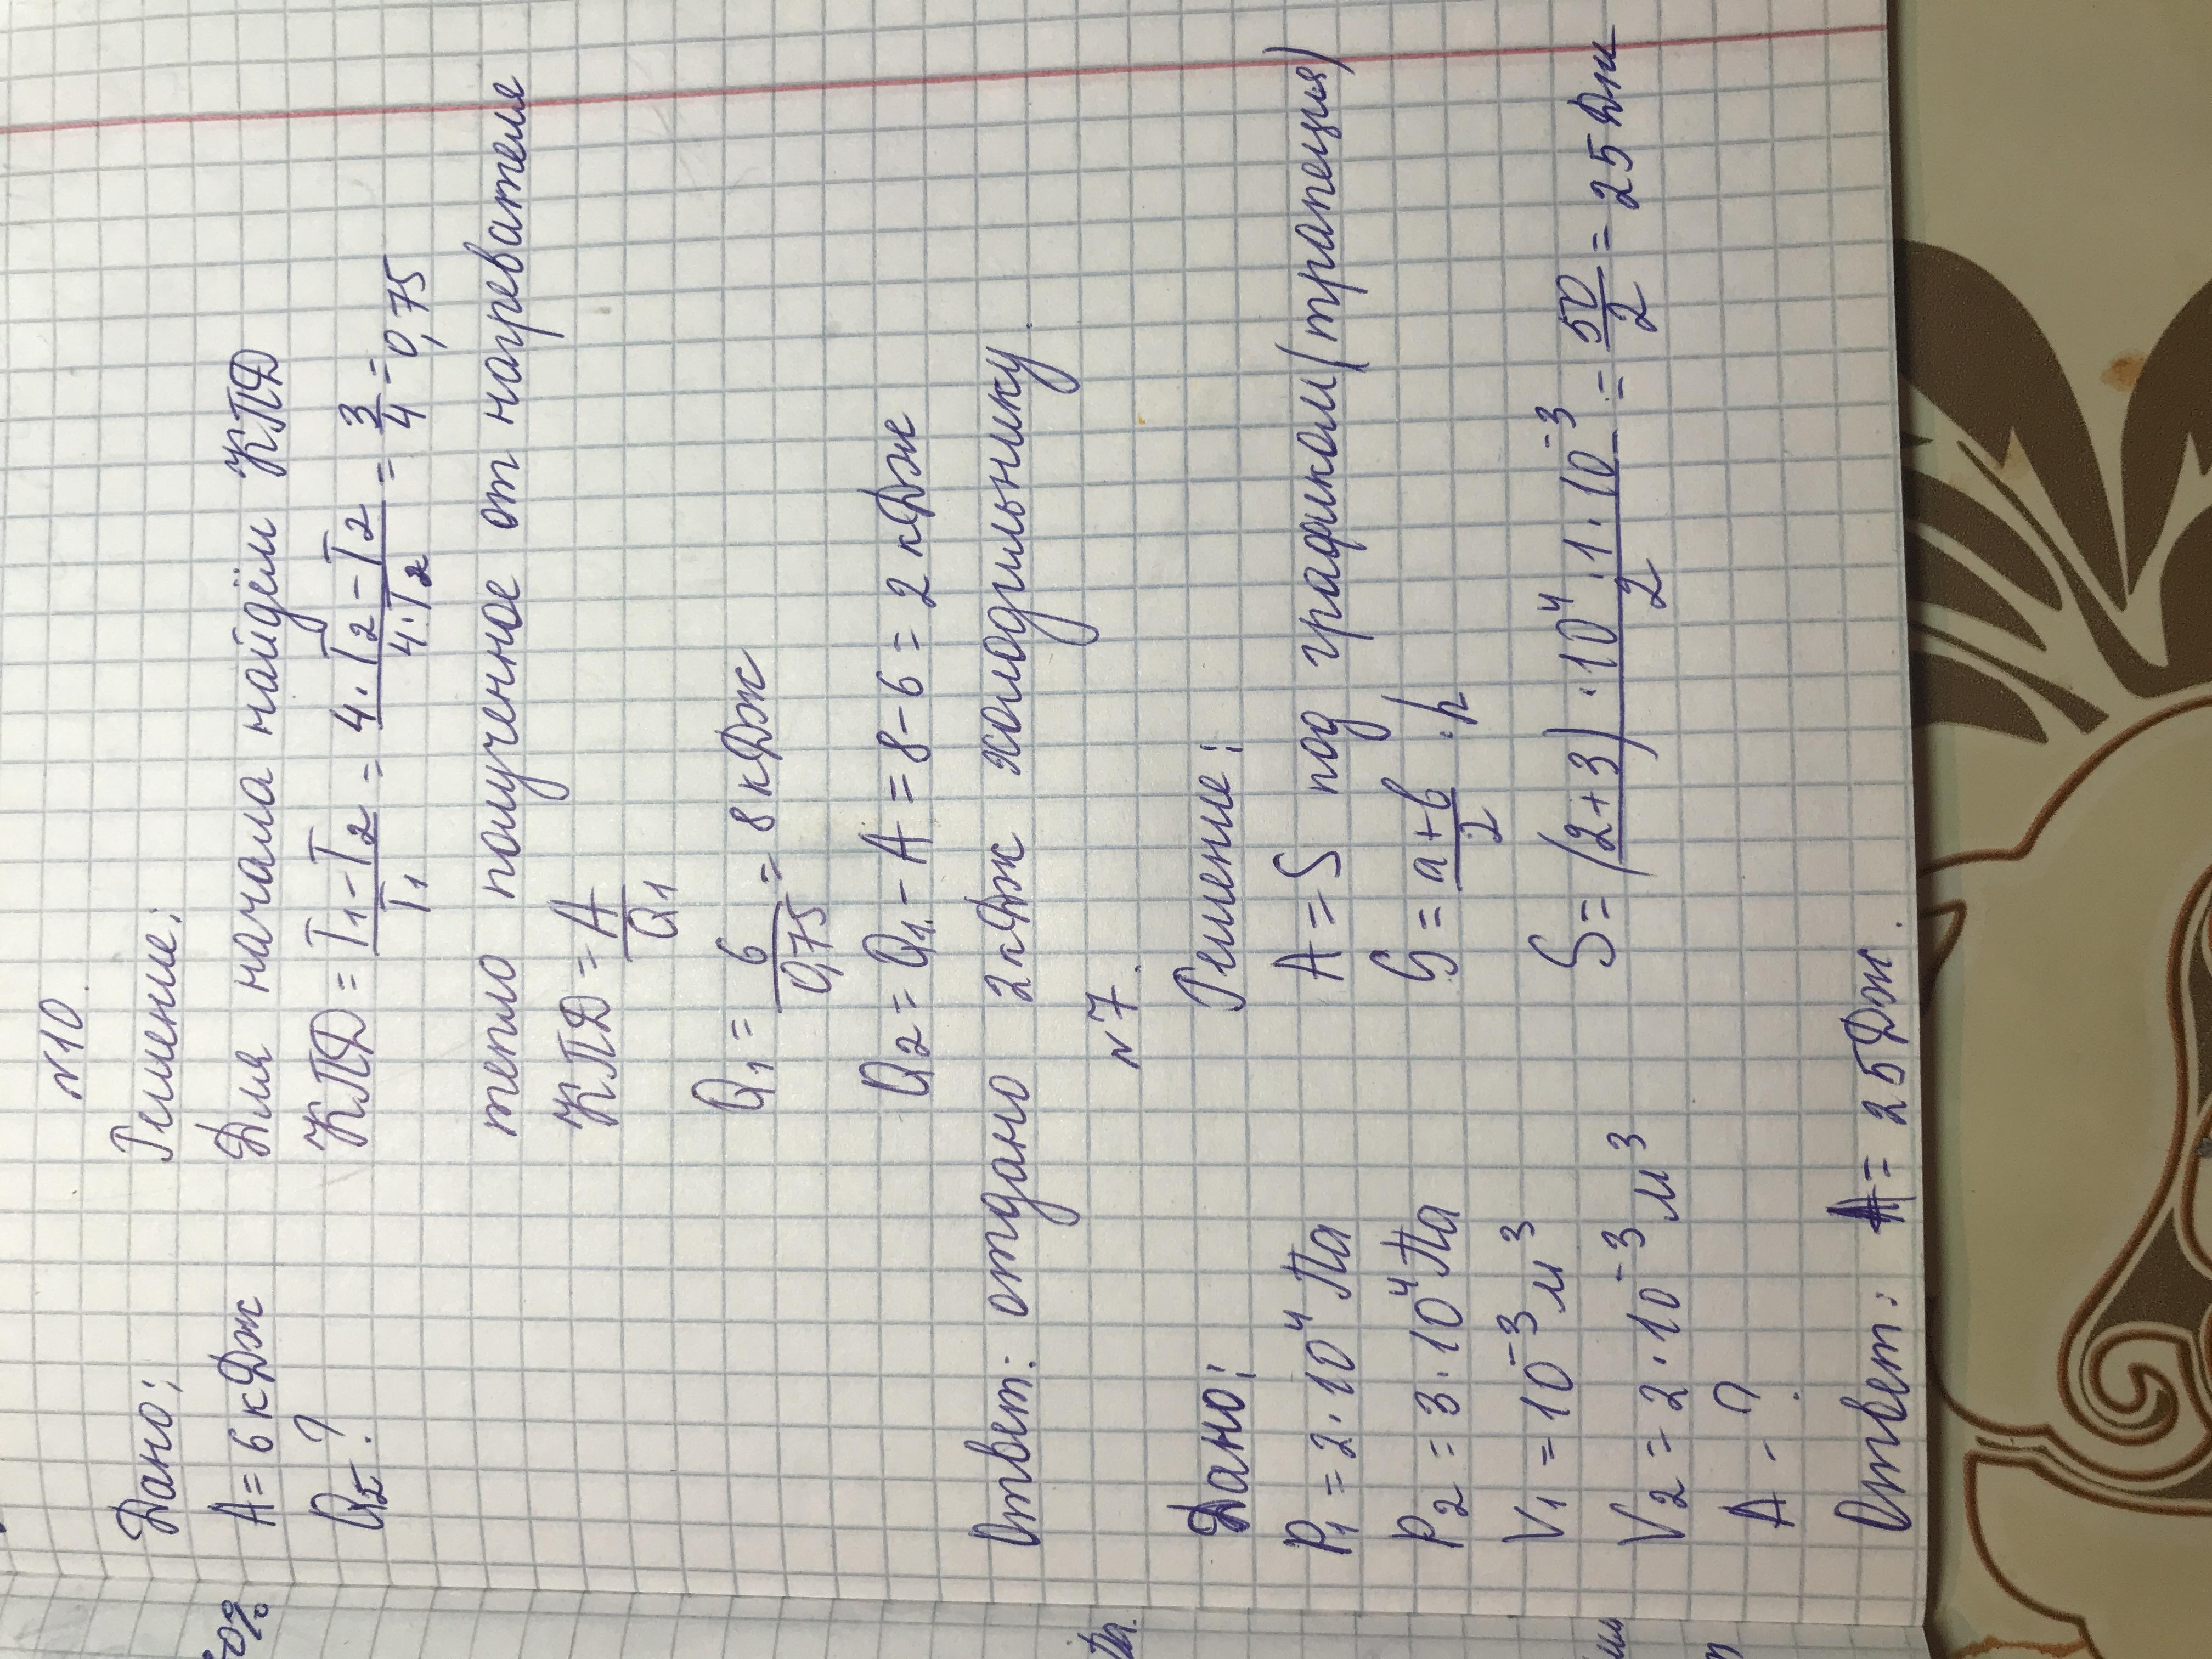 N10
Дано:
A = 6 кДж
Q2 - ?
Решение:
Для начала найдём КПД
КПД = T1 - T2 / T1 = 4 · T2 - T2 / 4 · T2 = 3/4 = 0,75
тепло полученное от нагревателя
КПД = A / Q1
Q1 = 6 / 0,75 = 8 кДж
Q2 = Q1 - A = 8 - 6 = 2 кДж
Ответ: отдано 2 кДж холодильнику.
N7.
Дано:
P1 = 2 · 10⁴ Па
P2 = 3 · 10⁴ Па
V1 = 10⁻³ м³
V2 = 2 · 10⁻³ м³
A - ?
Решение:
A = S под графиком (трапеция)
S = a + b / 2 · h
S = (2 + 3) · 10⁴ · 1 · 10⁻³ / 2 = 50 / 2 = 25 Дж
Ответ: A = 25 Дж.
0%
Па.